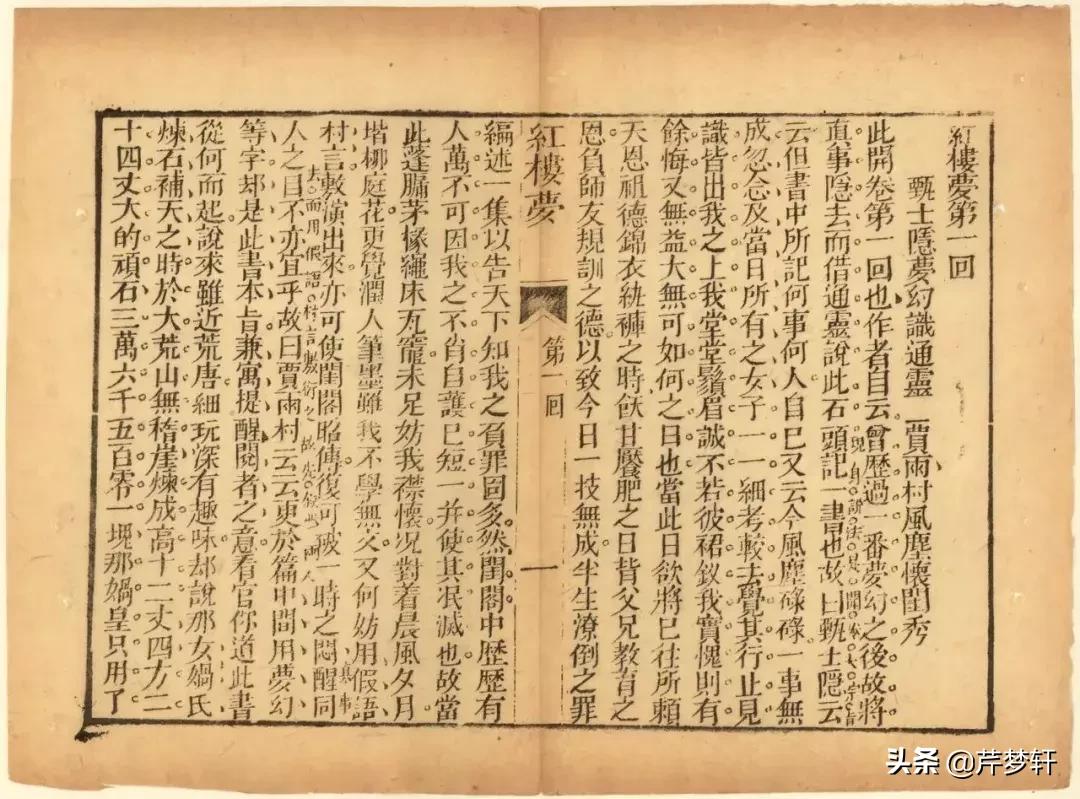 紅樓夢第一回
甄士隱夢幻識通靈 賈雨村風塵懷閨秀
此開卷第一回也作者自云曾歷過一番夢幻之後故將
現身說法是開
真事隱去而借通靈說此石頭記一書也故曰甄士隱云
云但書中所記何事何人自己又云今風塵碌碌一事無
成忽念及當日所有之女子一一細考較去覺其行止見
識皆出我之上我堂堂鬚眉誠不若彼裙釵我實愧則有
餘悔又無益大無可如何之日也當此日欲將已往所賴
天恩祖德錦衣紈褲之時飫甘饜肥之日背父兄教育之
恩負師友規訓之德以致今日一技無成半生潦倒之罪
紅樓夢 第一回 一
編述一集以告天下知我之負罪固多然閨閣中歷歷有
人萬不可因我之不肖自護己短一并使其泯滅也故當
此蓬牖茅椽繩床瓦竈未足妨我襟懷况對着晨風夕月
堦柳庭花更覺潤人筆墨雖我不學無文又何妨用假語
真事
村言敷演出來亦可使閨閣昭傳復可破一時之悶醒同
去而用假語村言敷衍之故先叙此兩人
人之目不亦宜乎故曰賈雨村云云更於篇中間用夢幻
等字却是此書本旨兼寓提醒閱者之意看官你道此書
從何而起說來雖近荒唐細玩深有趣味却說那女媧氏
煉石補天之時於大荒山無稽崖煉成高十二丈四方二
十四丈大的頑石三萬六千五百零一塊那媧皇只用了
头条 @芹梦轩